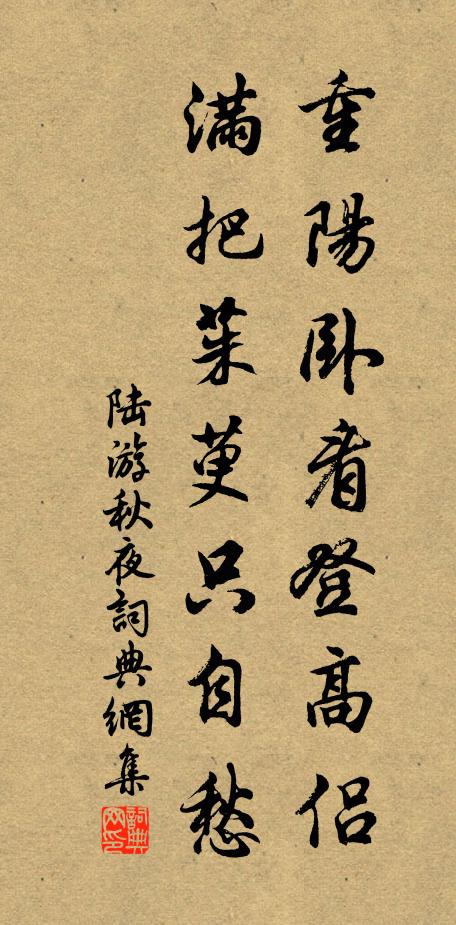 重陽卧看登高侶
滿把茱萸只自愁
陆游秋夜詞典網集
詞典网印